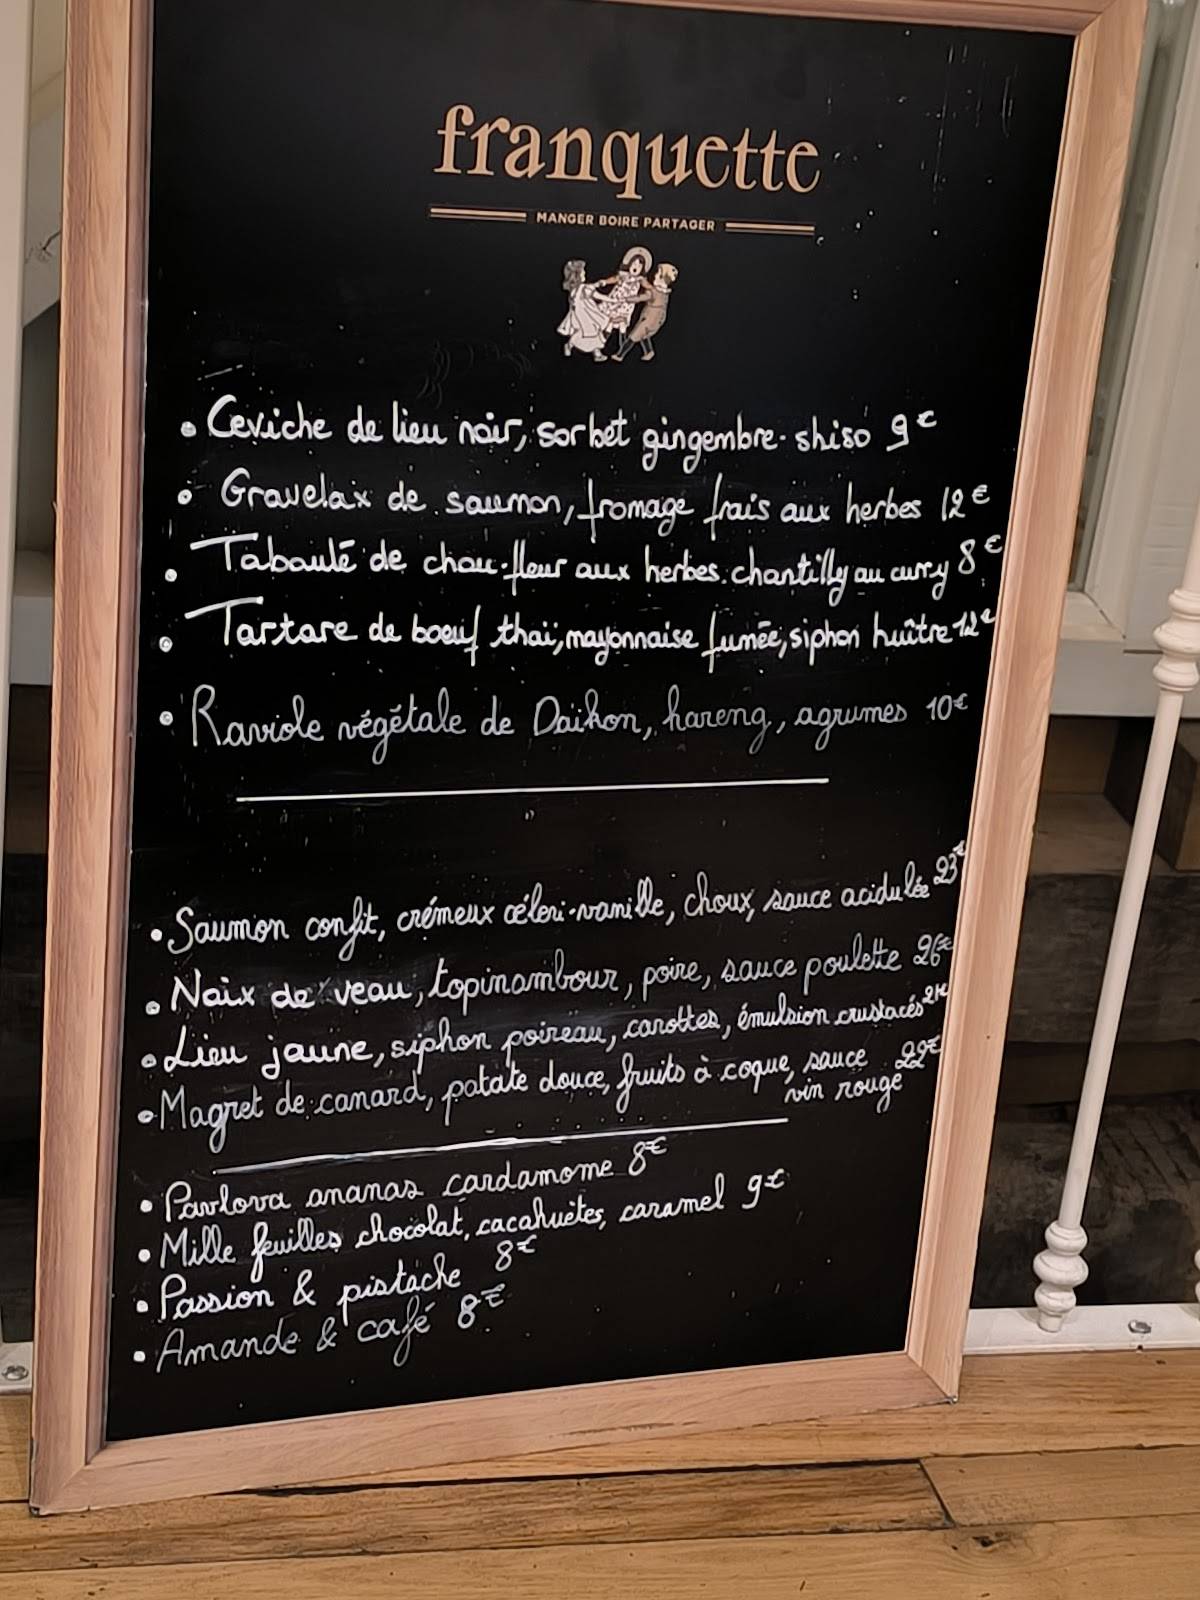 franquette
MANGER BOIRE PARTAGER
• Ceviche de lieu noir, sorbet gingembre-shiso 9€
• Gravelax de saumon, fromage frais aux herbes 12€
• Taboulé de chou-fleur aux herbes, chantilly au curry 8€
• Tartare de boeuf thaï, mayonnaise fumée, siphon huître 12€
• Raviole végétale de Daikon, hareng, agrumes 10€
• Saumon confit, crémeux céleri-vanille, choux, sauce acidulée 23€
• Noix de veau, topinambour, poire, sauce poulette 26€
• Lieu jaune, siphon poireau, carottes, émulsion crustacés
• Magret de canard, patate douce, fruits à coque, sauce 22€
vin rouge
• Pavlova ananas cardamome 8€
• Mille feuilles chocolat, cacahuètes, caramel 9€
• Passion & pistache 8€
• Amande & café 8€